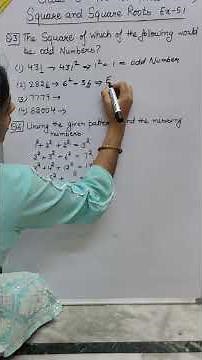 Square and Square Roots Ex-5.1
Q3 The Square of which of the following would
be odd Numbers?
(1) 431 → 431² ⇒ 1² = 1 = odd Number
(2) 2826 → 6² = 36 ⇒ E
(3) 7779 →
(4) 82004 →
Using the given pattern
and the missing
numbers.
1² + 2² + 2² = 3²
2² + 3² + 6² = 7²